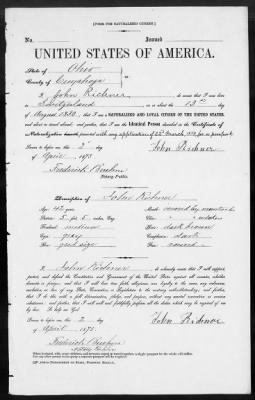 [FORM FOR NATURALIZED CITIZEN.]
No. Issued
UNITED STATES OF AMERICA.
State of Ohio
County of Cuyahoga
I John Richner do swear that I was born
in Switzerland on or about the 13th day
of August 1830, that I am a NATURALIZED AND LOYAL CITIZEN OF THE UNITED STATES,
and about to travel abroad; and further, that I am the Identical Person described in the Certificate
of Naturalization presented with my application of March for a passport
Sworn to before me this 2 day John Richner
of April 1873
Frederick
Notary Public.
Description of John Richner
Age: 42 years Mouth:
Stature: 5 feet 5 inches, Eng. Chin:
Forehead: medium Hair: dark brown
Eyes: gray Complexion: dark
Nose: good size Face: round
I John Richner do solemnly swear that I will support,
protect, and defend the Constitution and Government of the United States against all enemies, whether
domestic or foreign; and that I will bear true faith, allegiance, and loyalty to the same, any ordinance,
resolution, or law of any State, Convention, or Legislature to the contrary notwithstanding; and further,
that I do this with a full determination, pledge, and purpose, without any mental reservation or evasion
whatsoever; and further, that I will well and faithfully perform all the duties which may be required of me
by law. So help me God.
John Richner
Sworn to before me this 2 day
of April 1873
Frederick
Notary Public